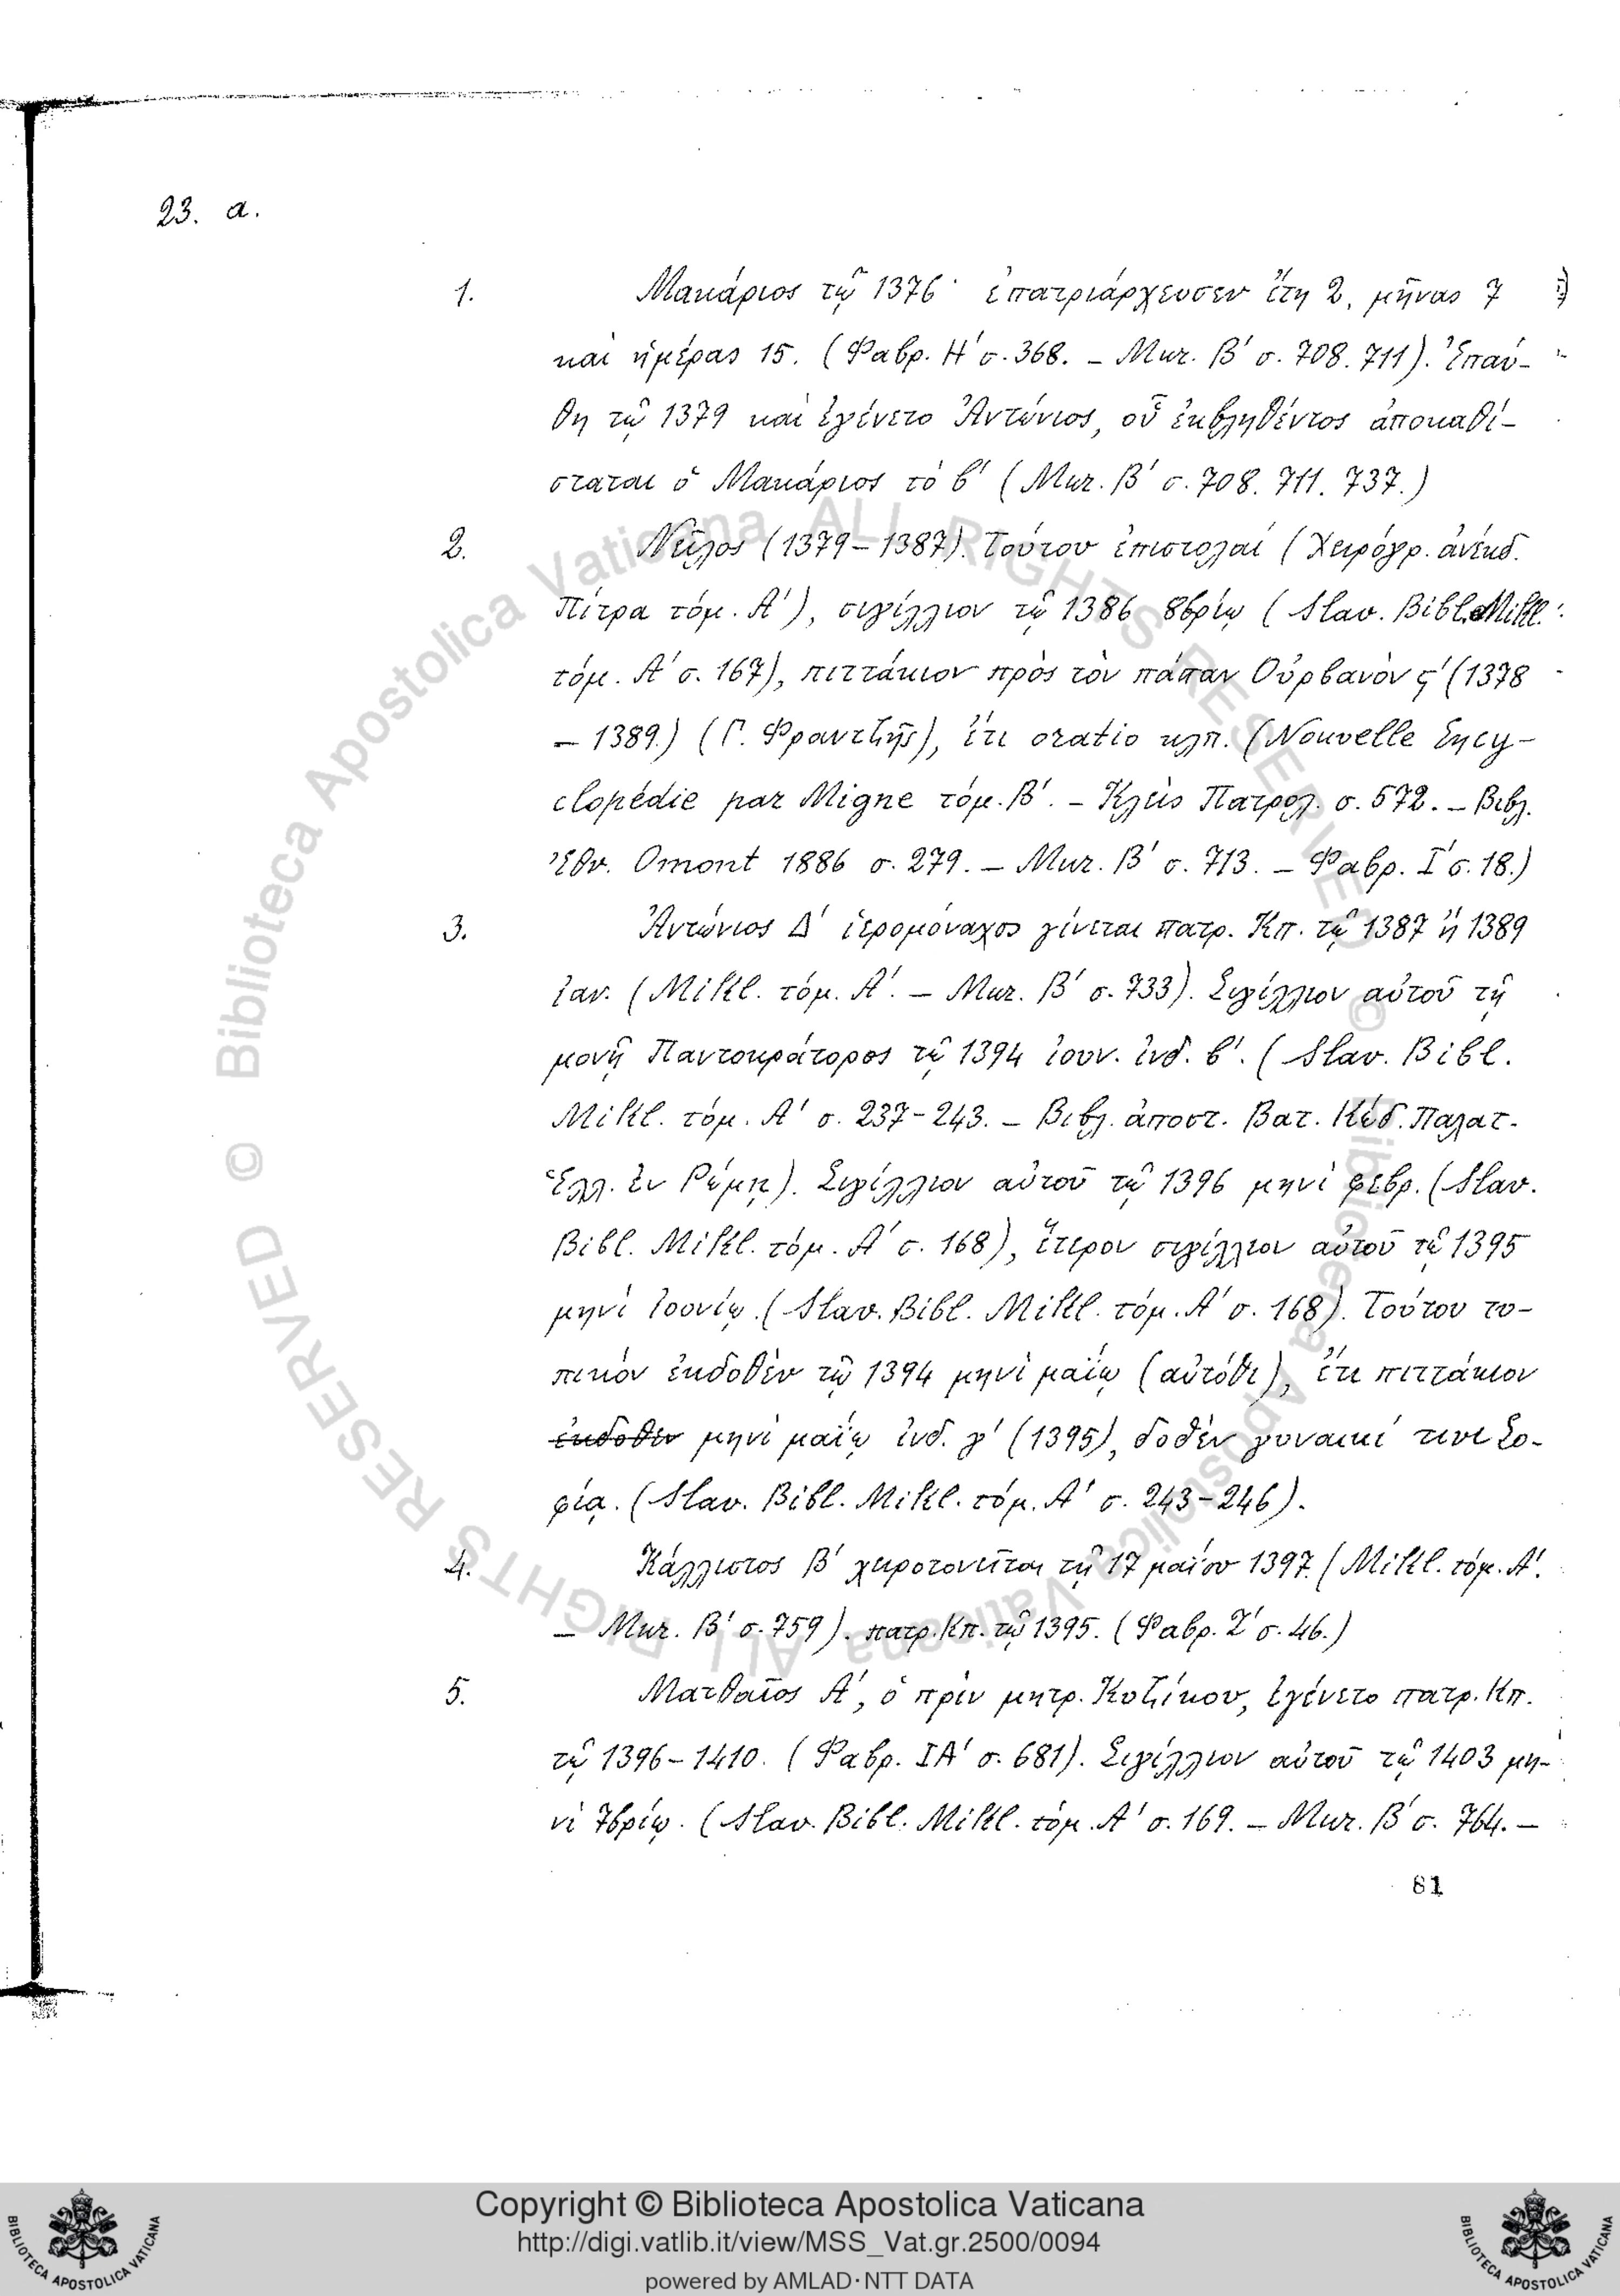 23. a.
1. Μακάριος τῷ 1376· ἐπατριάρχευσεν ἔτη 2, μῆνας 7
καὶ ἡμέρας 15. (Φαβρ. Η΄ σ. 368. – Μυτ. Β΄ σ. 708. 711). Ἐπαύ-
θη τῷ 1379 καὶ ἐγένετο Ἀντώνιος, οὗ ἐκβληθέντος ἀποκαθί-
σταται ὁ Μακάριος τὸ β΄ (Μυτ. Β΄ σ. 708. 711. 737.)
2. Νεῖλος (1379–1387). Τούτου ἐπιστολαί (Χειρόγρ. ἀνέκδ.
Πίτρα τόμ. Α΄), σιγίλλιον τῷ 1386 8βρίῳ (Slav. Bibl. Mikl.
τόμ. Α΄ σ. 167), πιττάκιον πρὸς τὸν πάπαν Οὐρβανὸν ϛ΄ (1378
– 1389.) (Γ. Φραντζῆς), ἔτι oratio κλπ. (Nouvelle Ency-
clopédie par Migne τόμ. Β΄. – Κλεὶς Πατρολ. σ. 572. – Βιβλ.
Ἐθν. Omont 1886 σ. 279. – Μυτ. Β΄ σ. 713. – Φαβρ. Ι΄ σ. 18.)
3. Ἀντώνιος Δ΄ ἱερομόναχος γίνεται πατρ. Κπ. τῷ 1387 ἢ 1389
ἰαν. (Mikl. τόμ. Α΄. – Μυτ. Β΄ σ. 733). Σιγίλλιον αὐτοῦ τῇ
μονῇ Παντοκράτορος τῷ 1394 ἰουν. ἰνδ. β΄. (Slav. Bibl.
Mikl. τόμ. Α΄ σ. 237–243. – Βιβλ. ἀποστ. Βατ. Κώδ. Παλατ.
Ἑλλ. ἐν Ρώμῃ). Σιγίλλιον αὐτοῦ τῷ 1396 μηνὶ φεβρ. (Slav.
Bibl. Mikl. τόμ. Α΄ σ. 168), ἕτερον σιγίλλιον αὐτοῦ τῷ 1395
μηνὶ Ἰουνίῳ. (Slav. Bibl. Mikl. τόμ. Α΄ σ. 168). Τούτου τυ-
πικόν ἐκδοθὲν τῷ 1394 μηνὶ μαΐῳ (αὐτόθι), ἔτι πιττάκιον
ἐκδοθὲν μηνὶ μαΐῳ ἰνδ. γ΄ (1395), δοθὲν γυναικί τινι Σο-
φίᾳ. (Slav. Bibl. Mikl. τόμ. Α΄ σ. 243–246).
4. Κάλλιστος Β΄ χειροτονεῖται τῇ 17 μαΐου 1397. (Mikl. τόμ. Α΄.
– Μυτ. Β΄ σ. 759). πατρ. Κπ. τῷ 1395. (Φαβρ. Ζ΄ σ. 46.)
5. Ματθαῖος Α΄, ὁ πρὶν μητρ. Κυζίκου, ἐγένετο πατρ. Κπ.
τῷ 1396–1410. (Φαβρ. ΙΑ΄ σ. 681). Σιγίλλιον αὐτοῦ τῷ 1403 μη-
νὶ 7βρίῳ. (Slav. Bibl. Mikl. τόμ. Α΄ σ. 169. – Μυτ. Β΄ σ. 764. –
81
© Biblioteca Apostolica Vaticana ALL RIGHTS RESERVED © Biblioteca Apostolica Vaticana ALL RIGHTS RESERVED
Copyright © Biblioteca Apostolica Vaticana
http://digi.vatlib.it/view/MSS_Vat.gr.2500/0094
powered by AMLAD·NTT DATA
BIBLIOTECA APOSTOLICA VATICANA
BIBLIOTECA APOSTOLICA VATICANA